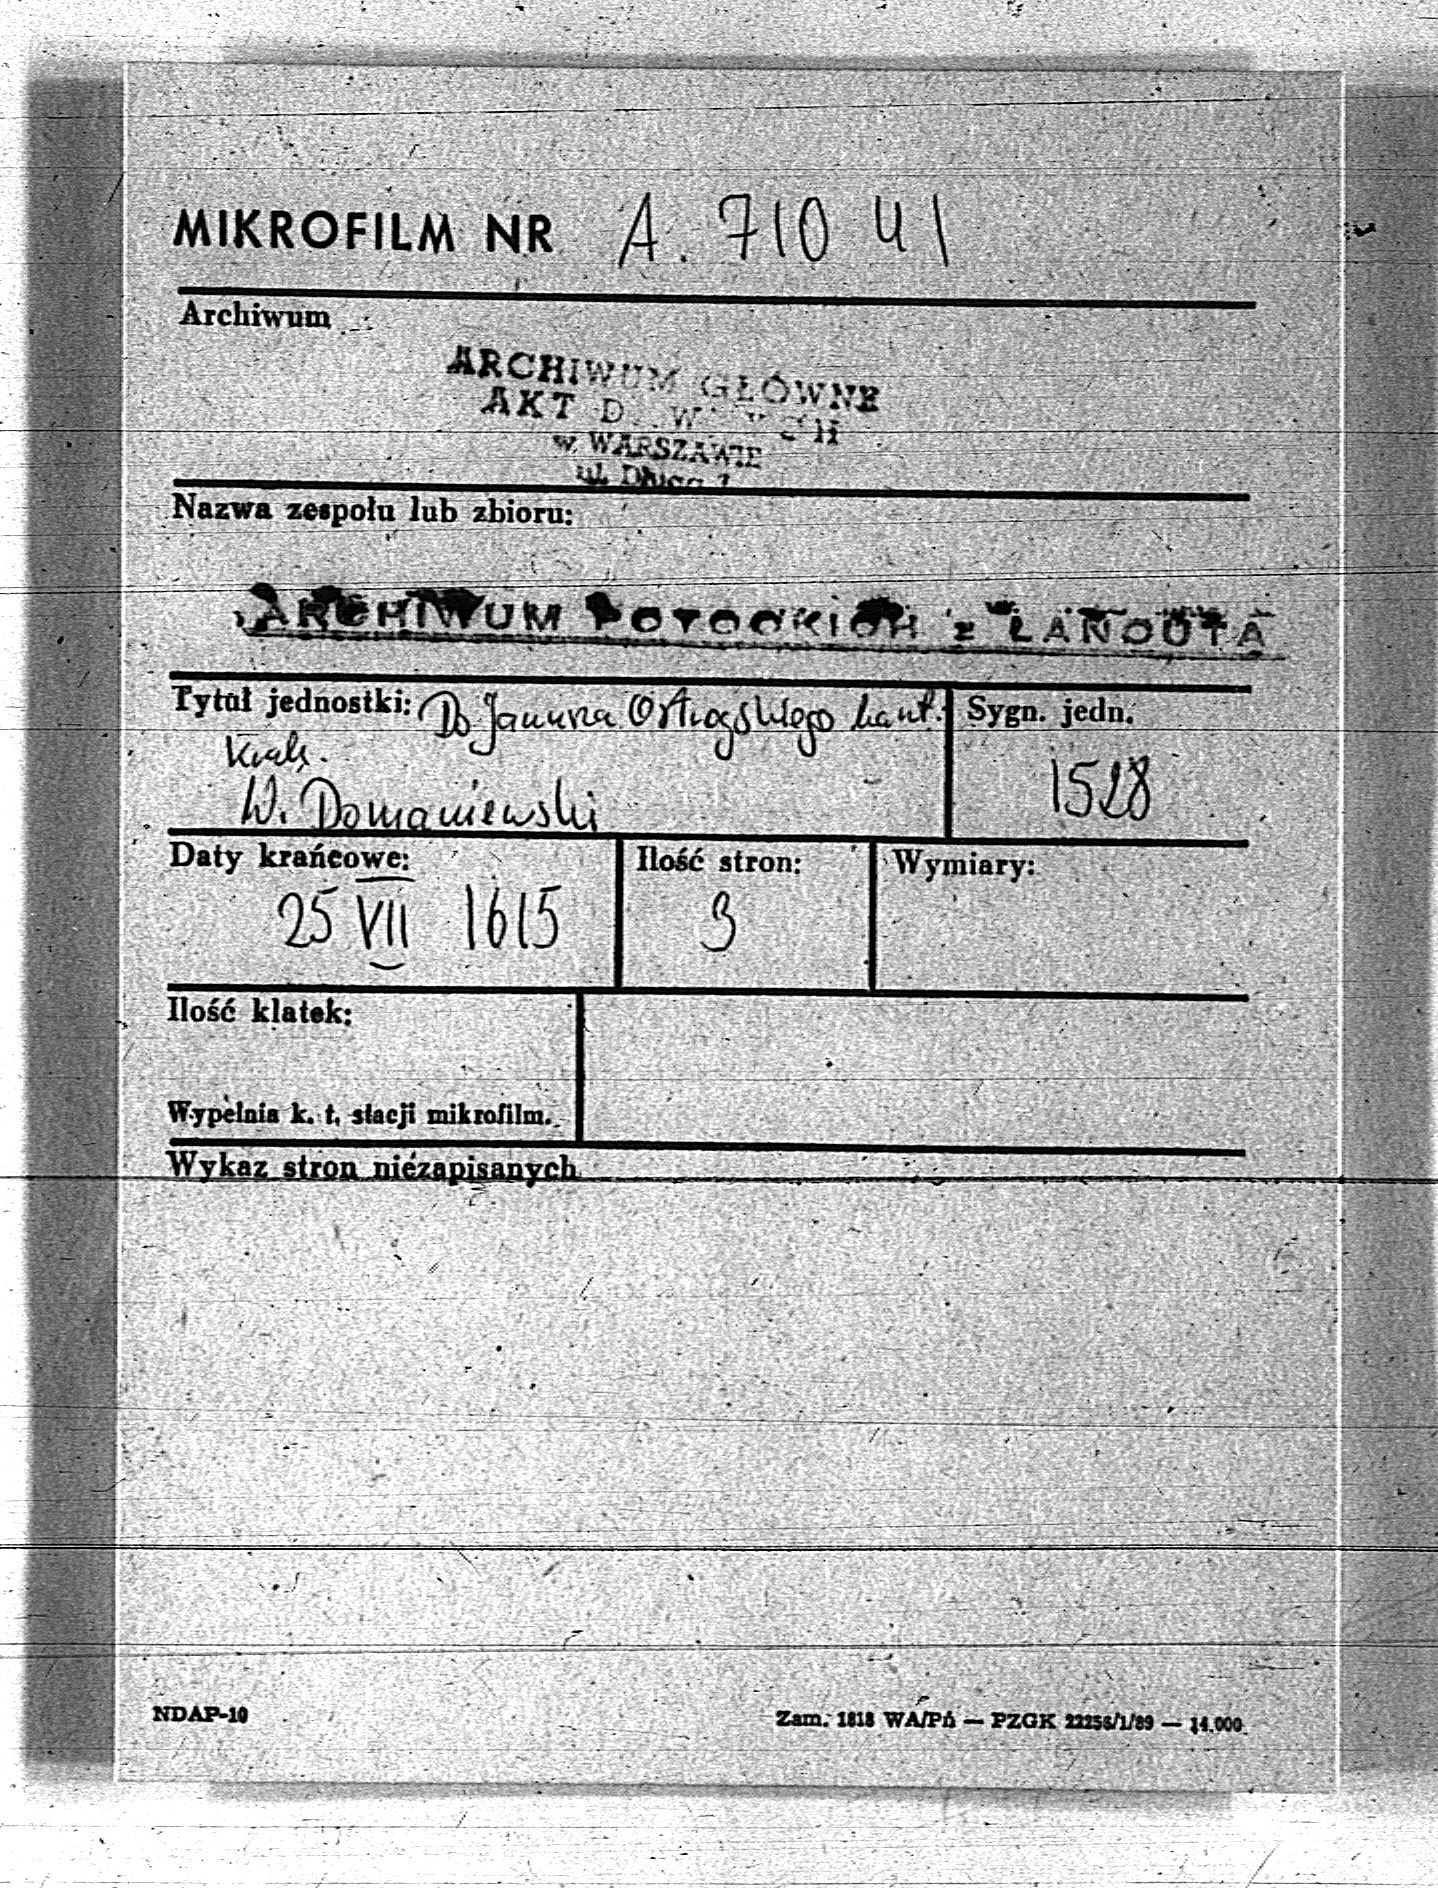 MIKROFILM NR A. 710 41
Archiwum
ARCHIWUM GŁÓWNE
AKT
w WARSZAWIE
ul. Długa 7
Nazwa zespołu lub zbioru:
ARCHIWUM POTOCKICH z ŁAŃCUTA
Tytuł jednostki: Do Janusza Ostrogskiego kaszt.
Krak.
W. Domaniewski
Sygn. jedn.
1528
Daty krańcowe:
25 VII 1615
Ilość stron:
3
Wymiary:
Ilość klatek:
Wypełnia k. t. stacji mikrofilm.
Wykaz stron niezapisanych
NDAP-10
Zam. 1818 WA/Pń — PZGK 22256/1/89 — 14.000